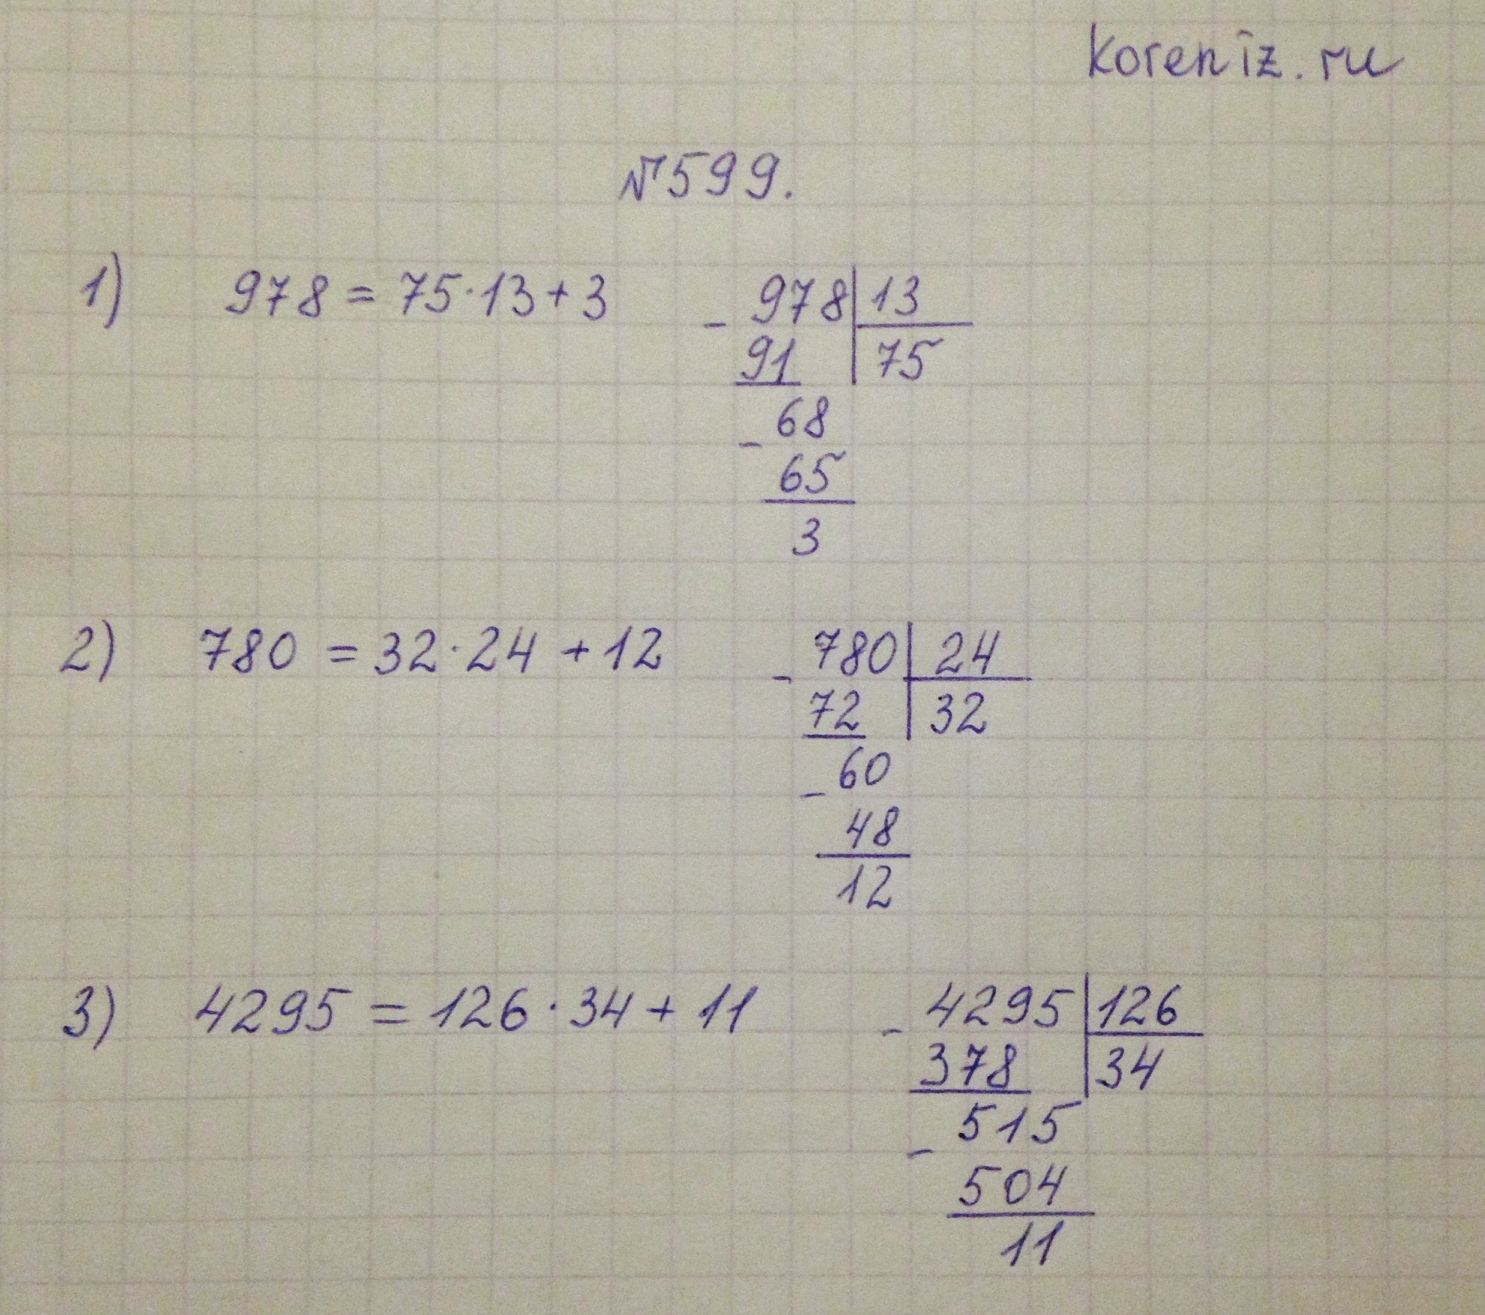 koreniz.ru
№599.
1) 978 = 75·13+3
- 978 | 13
91 | 75
- 68
65
3
2) 780 = 32·24 + 12
- 780 | 24
72 | 32
- 60
48
12
3) 4295 = 126·34 + 11
- 4295 | 126
378 | 34
- 515
504
11